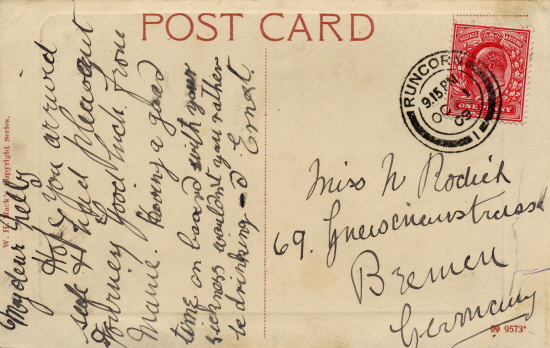 POST CARD
My dear Nelly
Hope you arrived
safe & had pleasant
Journey Good luck from
Mame. Having a good
time on board with your
sickness wouldn't you rather
be drinking - Ernest.
W. H. Hack's Copyright Series.
POSTAGE REVENUE
ONE PENNY
RUNCORN
9.15 PM
OC 7
09
1
Miss N Rodick
69.
Bremen
Germany
09 9573*